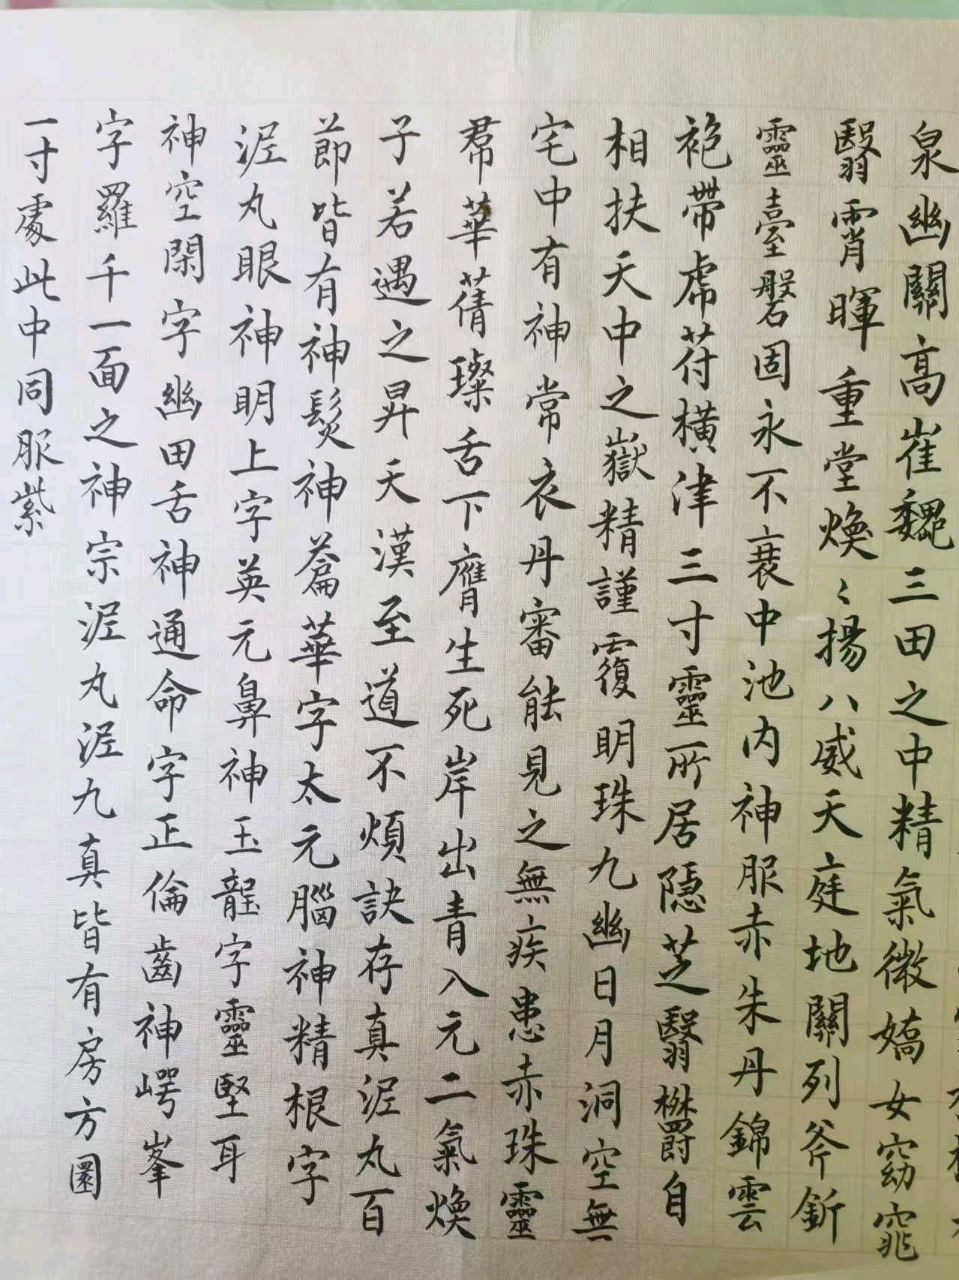 泉幽關高崔巍三田之中精氣微嬌女窈窕
翳霄暉重堂煥〻揚八威天庭地關列斧釿
靈臺磐固永不衰中池內神服赤朱丹錦雲
袍帶虎符橫津三寸靈所居隱芝翳欝自
相扶天中之嶽精謹覆明珠九幽日月洞空無
宅中有神常衣丹審能見之無疾患赤珠靈
帬華蒨璨舌下膺生死岸出青入元二氣煥
子若遇之昇天漢至道不煩訣存真泥丸百
節皆有神髮神蒼華字太元腦神精根字
泥丸眼神明上字英元鼻神玉龍字靈堅耳
神空閑字幽田舌神通命字正倫齒神崿峯
字羅千一面之神宗泥丸泥九真皆有房方圓
一寸處此中同服紫